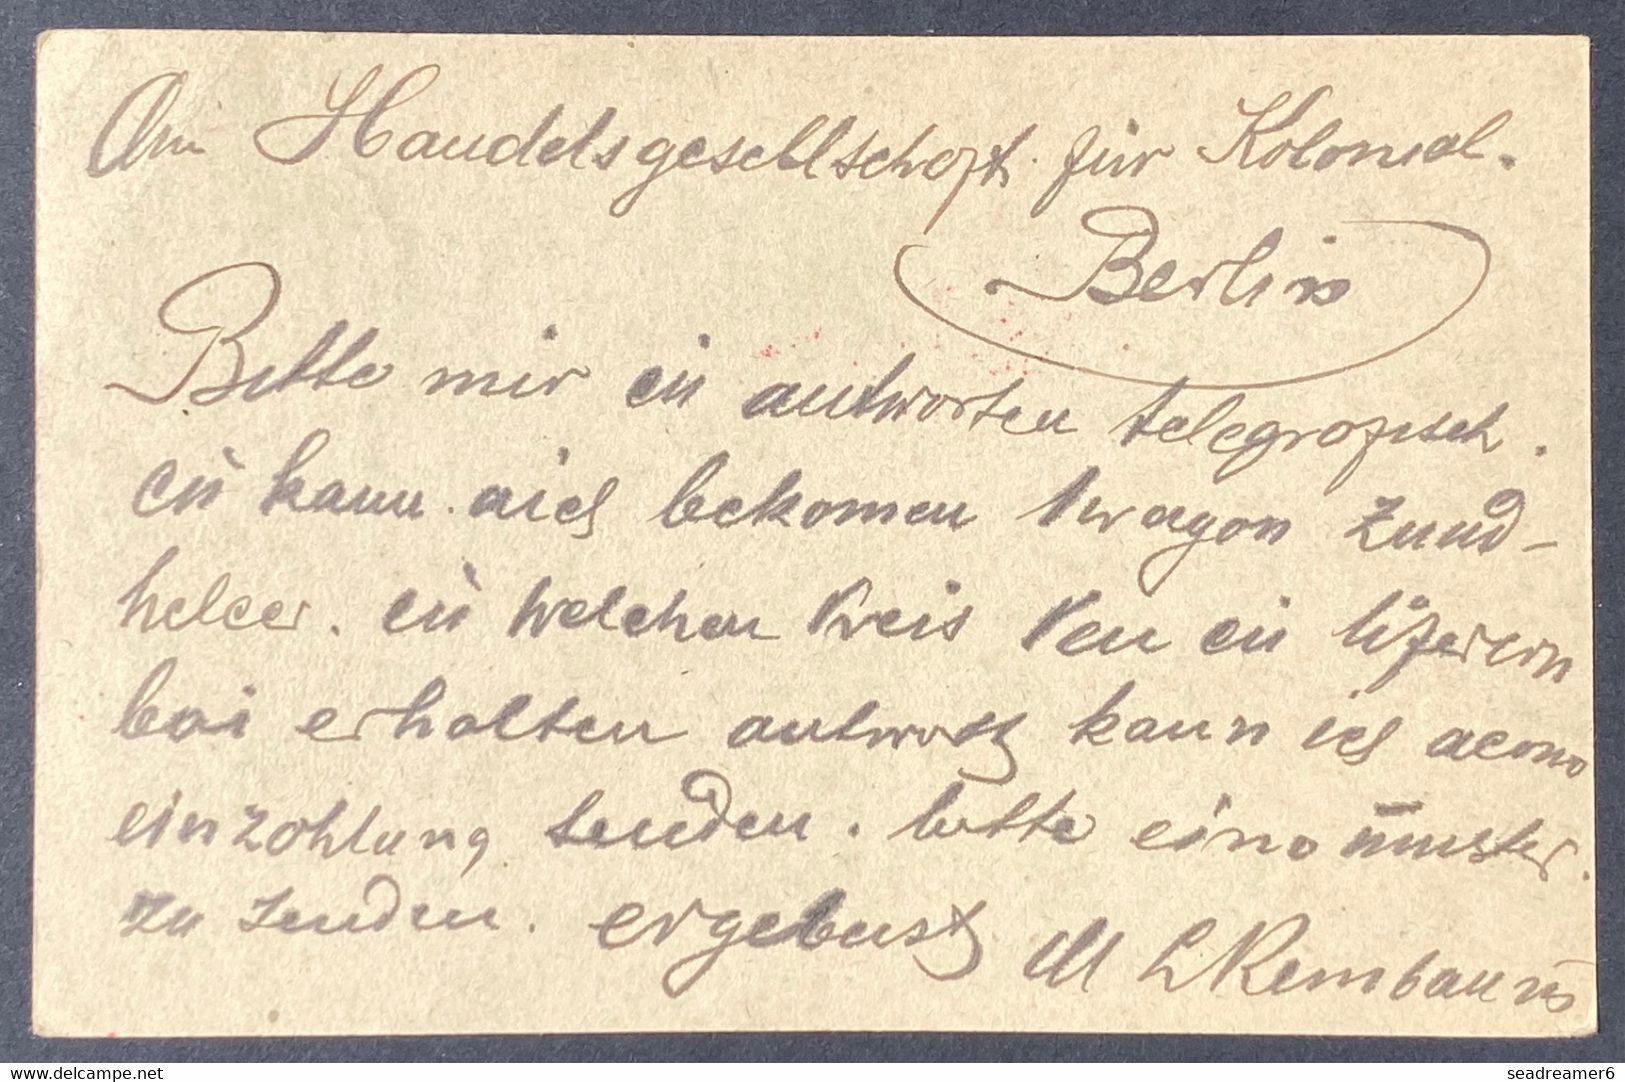 An Handelsgesellschaft für Kolonial.
Berlin
Bitte mir zu antworten telegrafisch.
zu kann ich bekomen 1 wagon Zund-
helcer. zu welchen Preis Ven zu liferern
bai erhalten antwort kann ich acono
einzahlung senden. bitte eine muster.
zu senden. ergebenst M L Rembaum
www.delcampe.net
seadreamer6